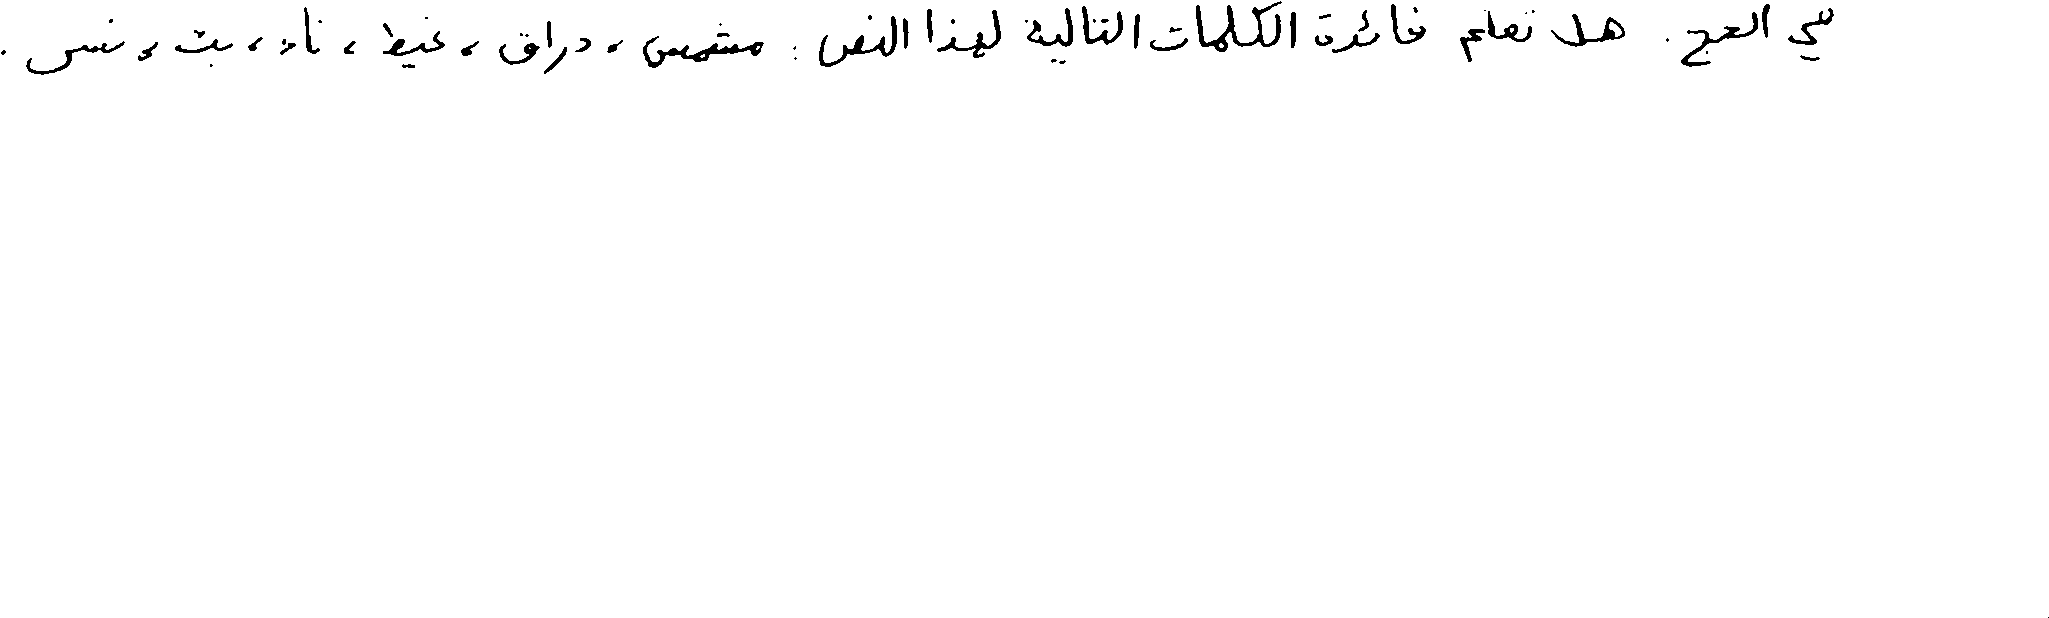 العج. هل تعلم فائدة الكلمات التالية لهذا النص: مشمس، دراق، غيط، ناء، بث، نسي.